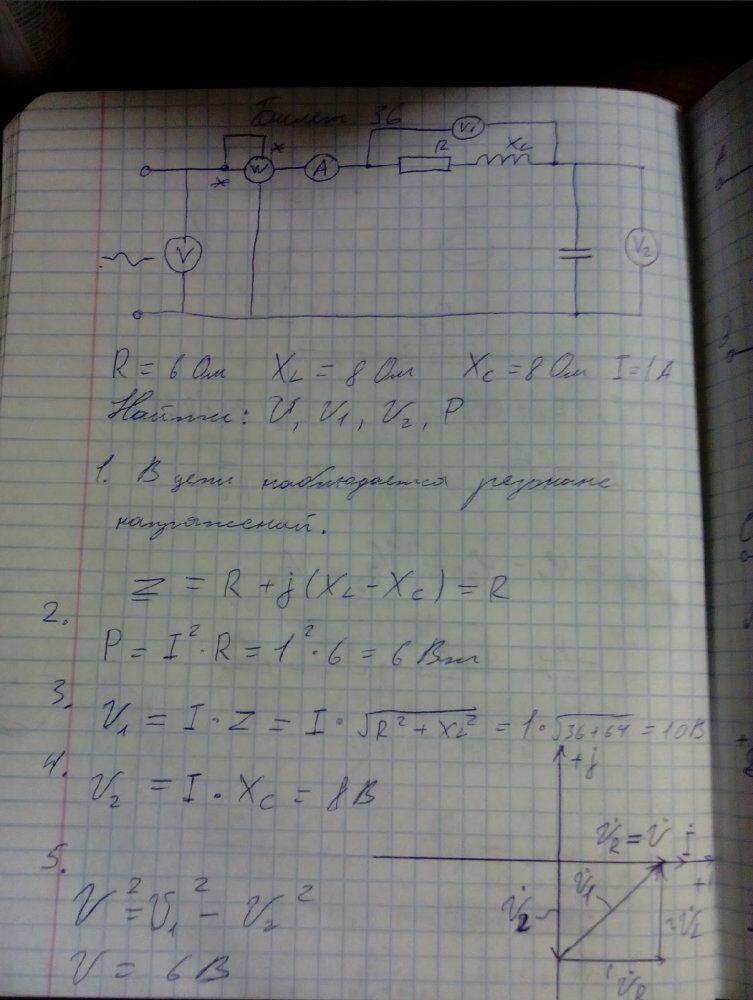 Билет 36
V1
* R XL
W A
*
V V2
R = 6 Ом XL = 8 Ом XC = 8 Ом I = 1 A
Найти: V, V1, V2, P
1. В цепи наблюдается резонанс
напряжений.
Z = R + j(XL - XC) = R
2.
P = I²·R = 1²·6 = 6 Вт
3.
V1 = I·Z = I·√(R² + XL²) = 1·√(36+64) = 10 В
4.
V2 = I·XC = 8 В
+j
V̇R = V̇ İ
5.
V̇1
V² = V1² - V2²
V̇2
V = 6 В